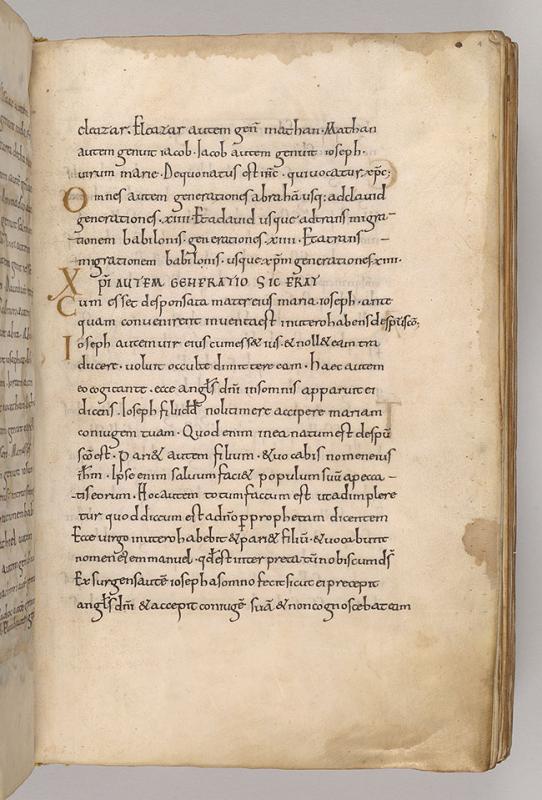 eleazar. Eleazar autem geñ mathan. Mathan
autem genuit iacob. Iacob autem genuit ioseph.
uirum marie. De quo natus est ihc. qui uocatur xpc;
Omnes autem generationes abraham usq; ad dauid
generationes. xiiii. Et a dauid usque ad trans migra-
tionem babilonis. generationes. xiiii. Et a trans-
migratione babilonis. usque xpm generationes. xiiii.
Xpi AUTEM GENERATIO SIC ERAT
Cum esset desponsata mater eius maria. ioseph. ante
quam conuenirent inuenta est in utero habens de spu sco;
Ioseph autem uir eius cum esset ius. & noll& eam tra
ducere. uoluit occulte dimittere eam. Haec autem
eo cogitante. ecce angls dni in somnis apparuit ei
dicens. Ioseph fili dd noli timere accipere mariam
coniugem tuam. Quod enim in ea natum est de spu
sco est. Pari& autem filium. & uocabis nomen eius
ihm. Ipse enim saluum faci& populum suu a pecca-
tis eorum. Hoc autem totum factum est ut adimplere
tur quod dictum est a dno p prophetam dicentem
Ecce uirgo in utero habebit & pari& filiu. & uocabunt
nomen ei emmanuel. qd est inter pretatu nobiscum ds
Exsurgens aute ioseph a somno fecit sicut ei precepit
angls dni & accepit coniuge sua. & non cognoscebat eam